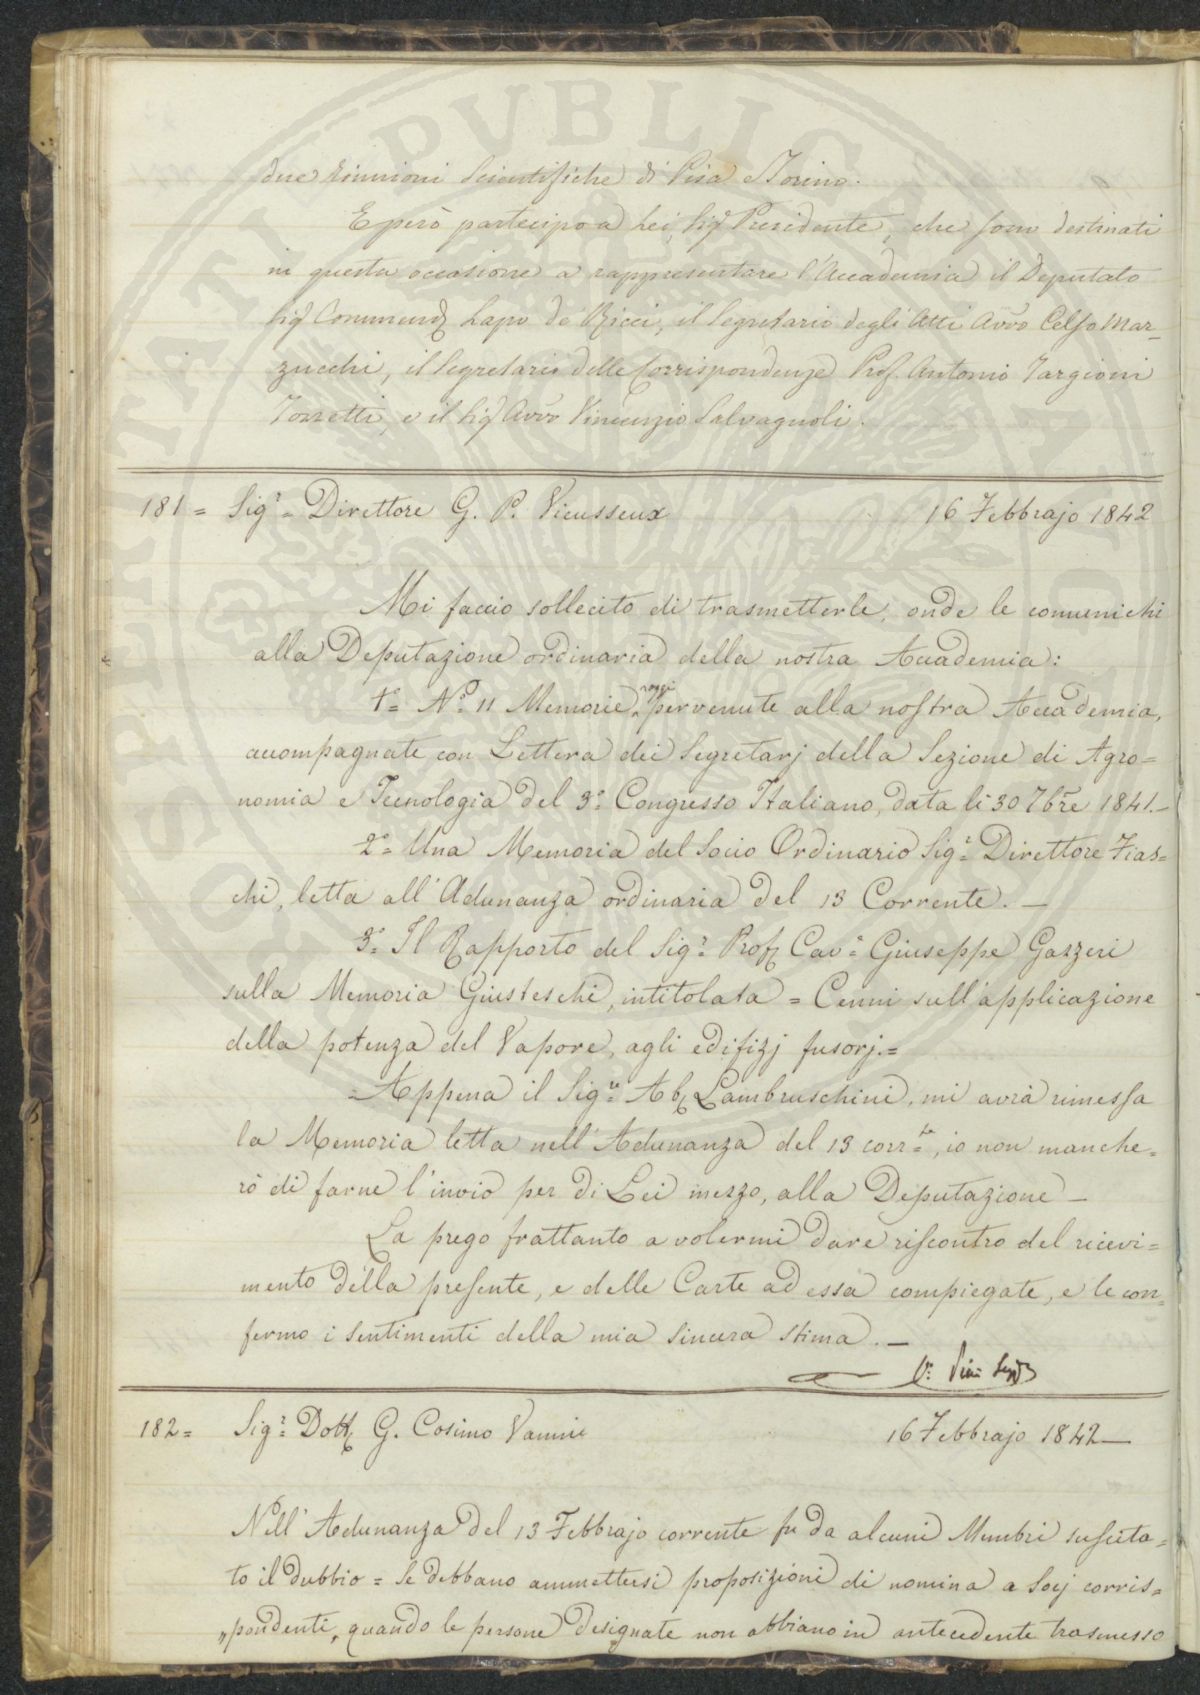 due riunioni Scientifiche di Pisa e Torino.
E però partecipo a Lei, Sig.r Presidente, che sono destinati
in questa occasione a rappresentare l'Accademia il Deputato
Sig.r Commend. Lapo de' Ricci, il Segretario degli Atti Avv.o Celso Mar-
zucchi, il Segretario delle Corrispondenze Prof. Antonio Targioni
Tozzetti, e il Sig.r Avv.o Vincenzio Salvagnoli.
181 = Sig.r Direttore G. P. Vieusseux 16 Febbrajo 1842
Mi faccio sollecito di trasmetterle, onde le comunichi
alla Deputazione ordinaria della nostra Accademia:
1.° N.° 11 Memorie, pervenute alla nostra Accademia,
accompagnate con Lettera dei Segretarj della Sezione di Agro=
nomia e Tecnologia del 3.° Congresso Italiano, data li 30 7bre 1841.—
2.° Una Memoria del Socio Ordinario Sig.r Direttore Fras=
chi, letta all'Adunanza ordinaria del 13 Corrente. —
3.° Il Rapporto del Sig.r Prof. Cav.e Giuseppe Gazzeri
sulla Memoria Giusteschi, intitolata = Cenni sull'applicazione
della potenza del Vapore, agli edifizj fusorj.=
=Appena il Sig.re Ab. Lambruschini, mi avrà rimessa
la Memoria letta nell'Adunanza del 13 corr.te, io non manche=
rò di farne l'invio per di Lei mezzo, alla Deputazione —
La prego frattanto a volermi dare riscontro del ricevi=
mento della presente, e delle Carte ad essa compiegate, e le con=
fermo i sentimenti della mia sincera stima. —
182 = Sig.r Dott. G. Cosimo Vannii 16 Febbrajo 1842 —
Nell'Adunanza del 13 Febbrajo corrente fu da alcuni Membri suscita=
to il dubbio = Se debbano ammettersi proposizioni di nomina a Socj corris=
„pondenti, quando le persone designate non abbiano in antecedente trasmesso
PVBLICA